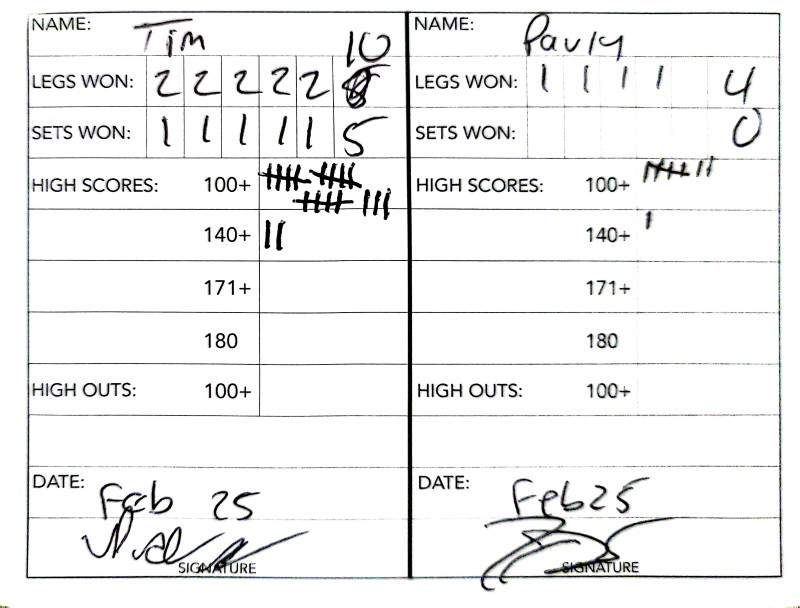 NAME: Tim
LEGS WON: 2 2 2 2 2 10
SETS WON: 1 1 1 1 1 5
HIGH SCORES: 100+
140+
171+
180
HIGH OUTS: 100+
DATE: Feb 25
SIGNATURE
NAME: Pauly
LEGS WON: 1 1 1 1 4
SETS WON: 0
HIGH SCORES: 100+
140+
171+
180
HIGH OUTS: 100+
DATE: Feb 25
SIGNATURE